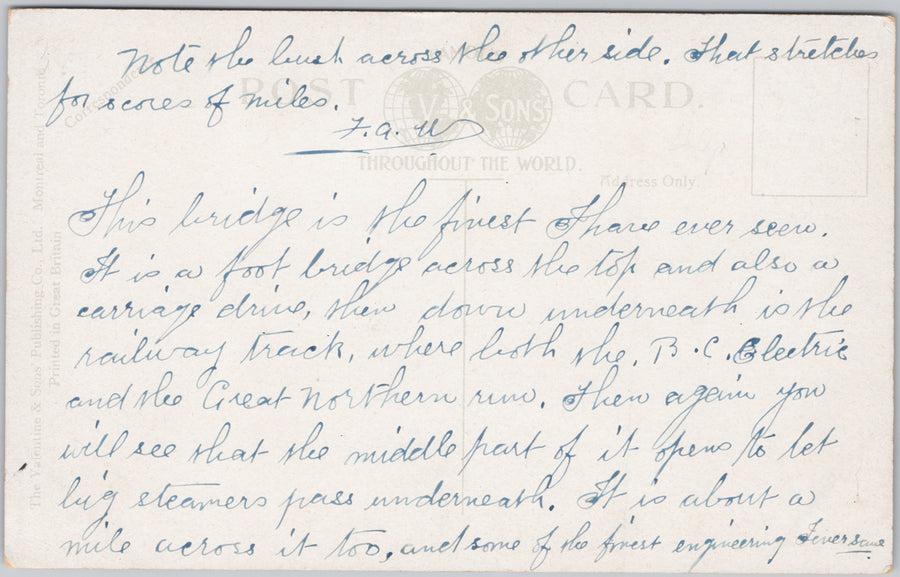 Note the bush across the other side. That stretches
for scores of miles.
F. A. U
POST CARD.
V. & SONS
THROUGHOUT THE WORLD.
Correspondence
Address Only.
This bridge is the finest I have ever seen.
It is a foot bridge across the top and also a
carriage drive, then down underneath is the
railway track, where both the B.C. Electric
and the Great Northern run. Then again you
will see that the middle part of it opens to let
big steamers pass underneath. It is about a
mile across it too, and some of the finest engineering I ever saw
The Valentine & Sons Publishing Co., Ltd. Montreal and Toronto.
Printed in Great Britain